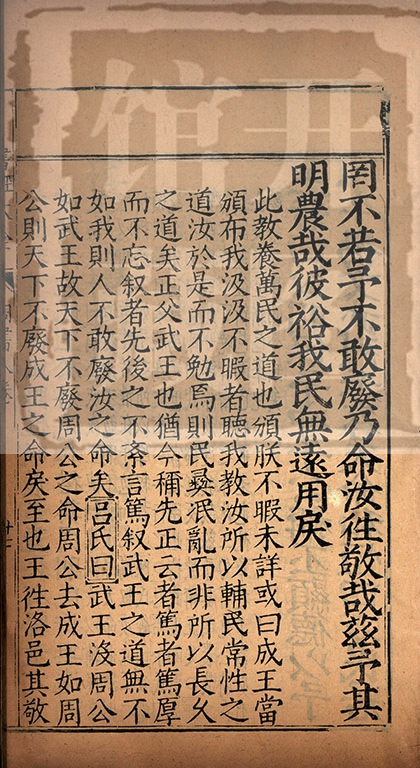 罔不若予不敢廢乃命汝徃敬哉兹予其
明農哉彼裕我民無遠用戾
此教養萬民之道也頒朕不暇未詳或曰成王當
頒布我汲汲不暇者聽我教汝所以輔民常性之
道汝於是而不勉焉則民彝泯亂而非所以長久
之道矣正父武王也猶今稱先正云者篤者篤厚
而不忘叙者先後之不紊言篤叙武王之道無不
如我則人不敢廢汝之命矣吕氏曰武王没周公
如武王故天下不廢周公之命周公去成王如周
公則天下不廢成王之命戾至也王徃洛邑其敬